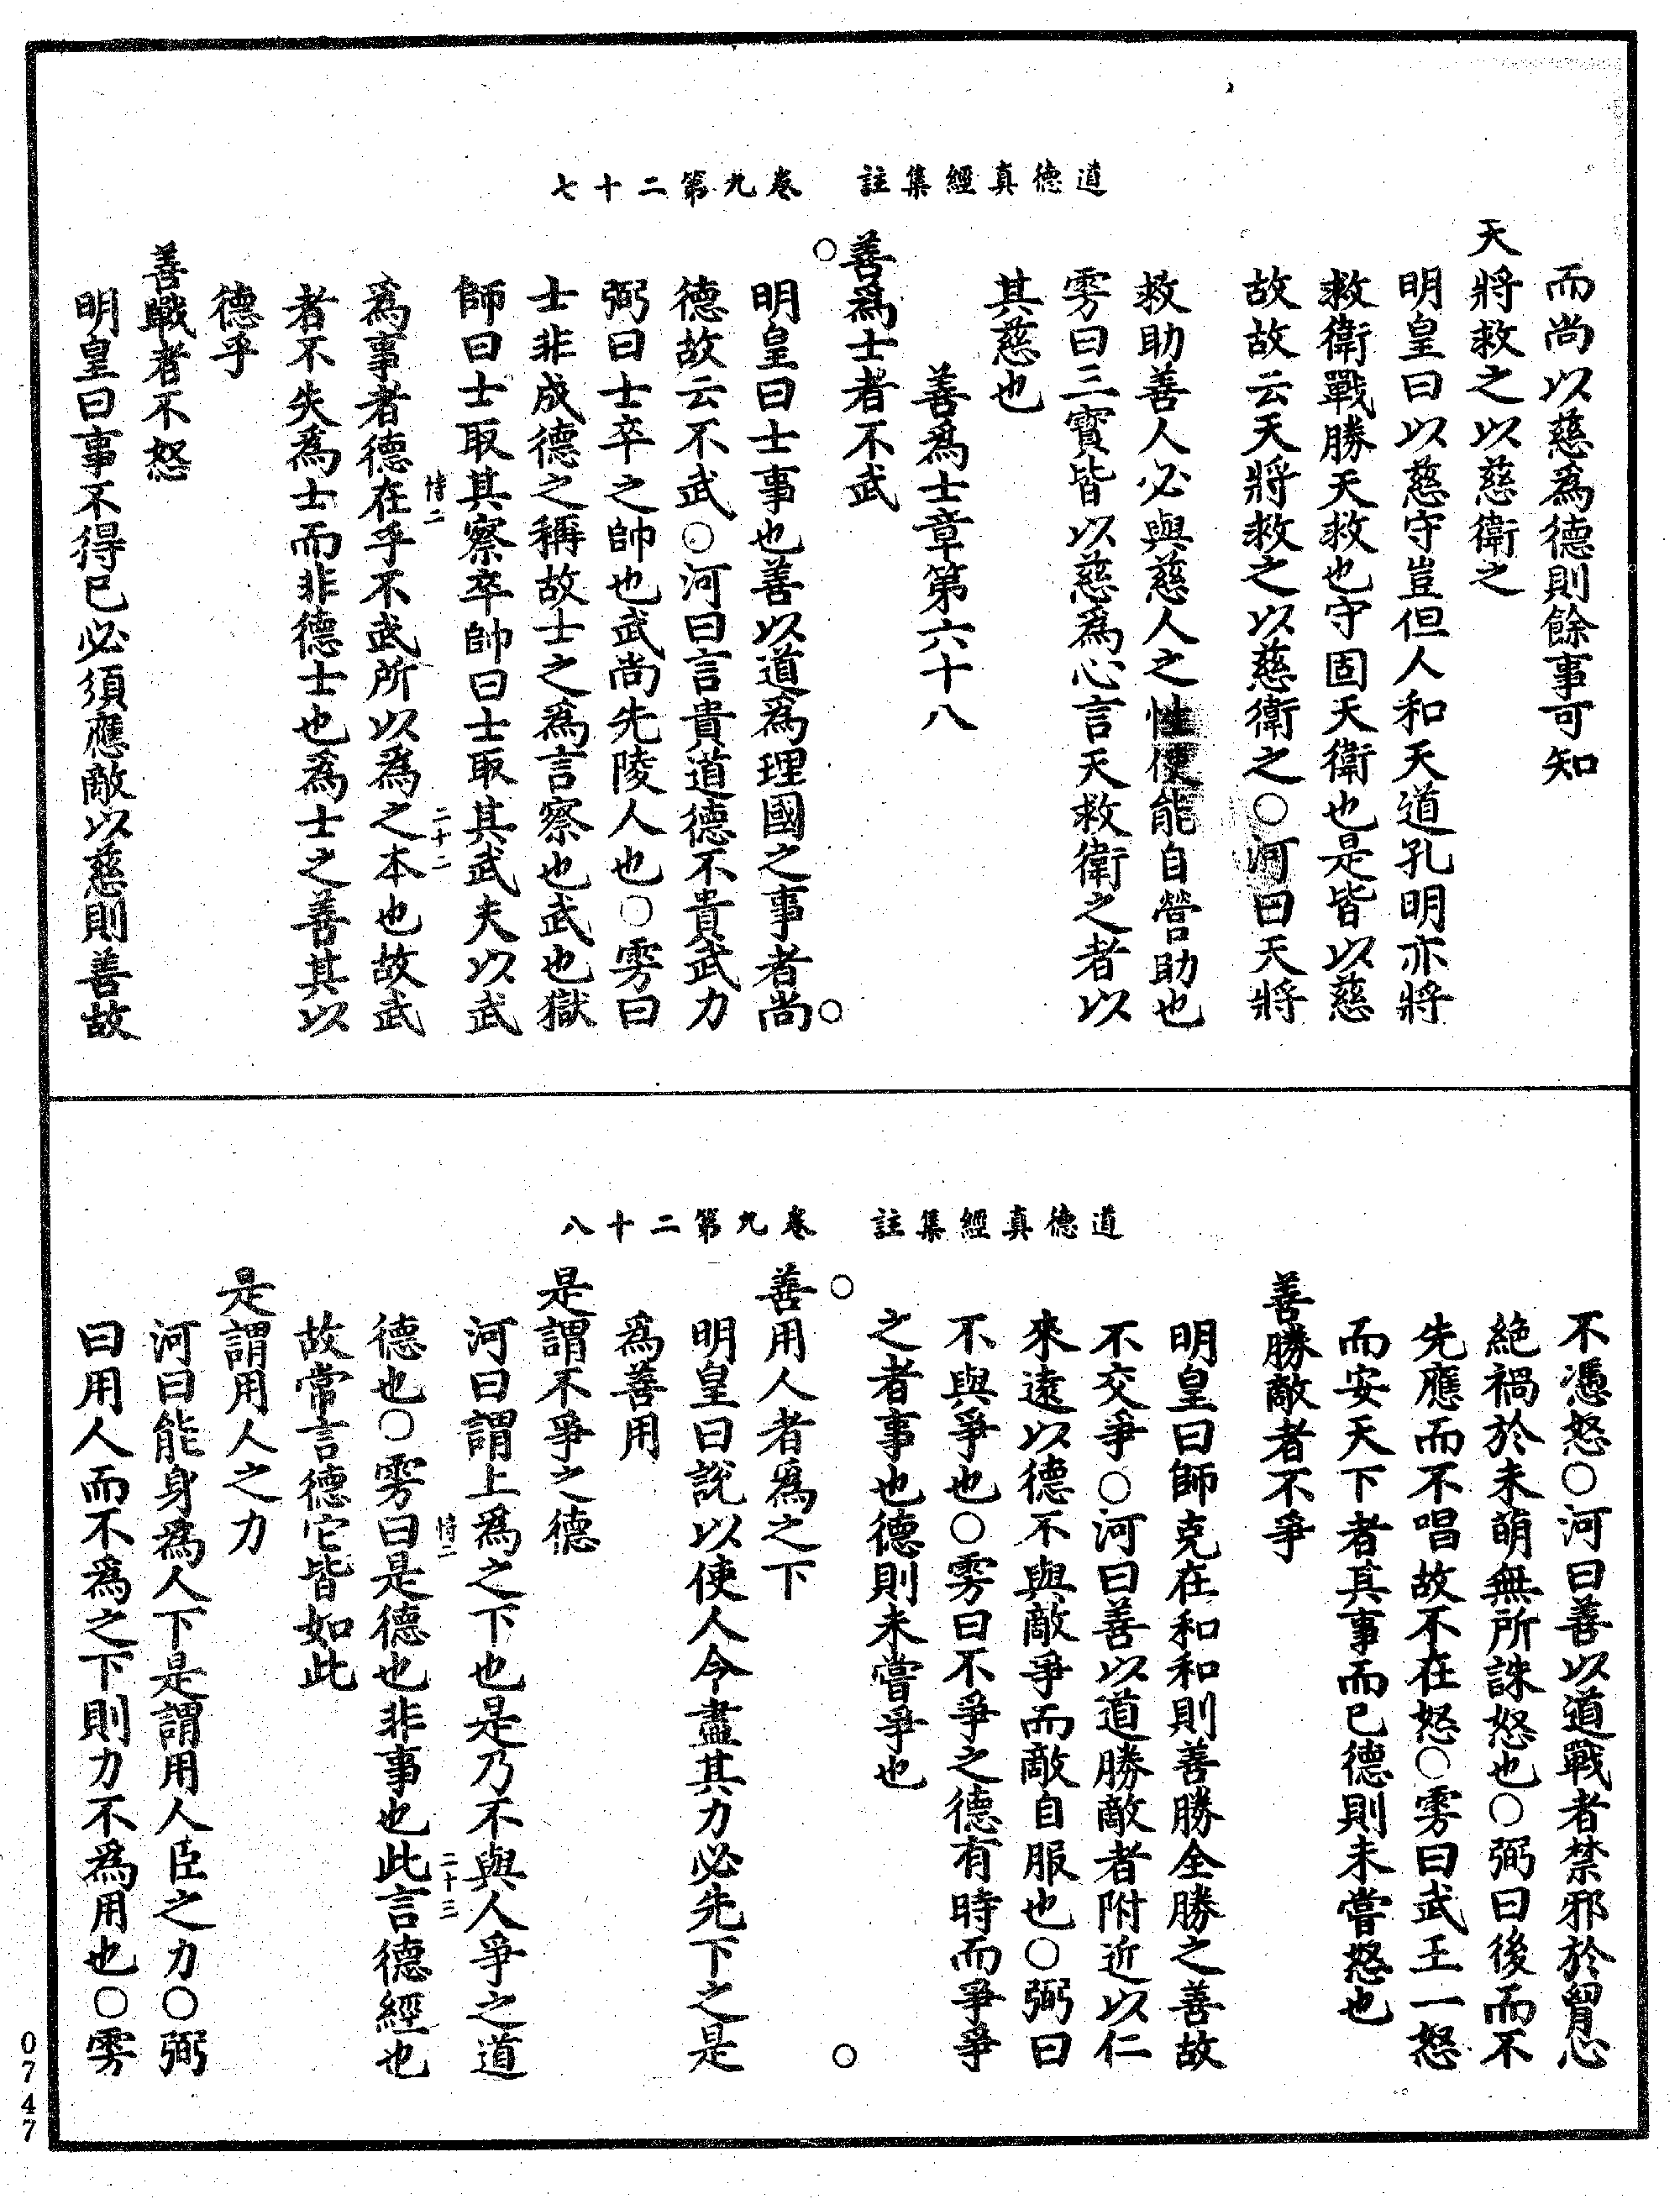 道德真經集註　卷九第二十七
而尚以慈爲德則餘事可知
天將救之以慈衛之
明皇曰以慈守豈但人和天道孔明亦將
救衛戰勝天救也守固天衛也是皆以慈
故故云天將救之以慈衛之○河曰天將
救助善人必與慈人之性使能自營助也
雱曰三寶皆以慈爲心言天救衛之者以
其慈也
善爲士章第六十八
○善爲士者不武○
明皇曰士事也善以道爲理國之事者尚
德故云不武○河曰言貴道德不貴武力
弼曰士卒之帥也武尚先陵人也○雱曰
士非成德之稱故士之爲言察也武也獄
師曰士取其察卒帥曰士取其武夫以武
恃二　二十二
爲事者德在乎不武所以爲之本也故武
者不失爲士而非德士也爲士之善其以
德乎
善戰者不怒
明皇曰事不得已必須應敵以慈則善故
道德真經集註　卷九第二十八
不憑怒○河曰善以道戰者禁邪於胷心
絕禍於未萌無所誅怒也○弼曰後而不
先應而不唱故不在怒○雱曰武王一怒
而安天下者其事而已德則未嘗怒也
善勝敵者不爭
明皇曰師克在和和則善勝全勝之善故
不交爭○河曰善以道勝敵者附近以仁
來遠以德不與敵爭而敵自服也○弼曰
不與爭也○雱曰不爭之德有時而爭爭
之者事也德則未嘗爭也
○善用人者爲之下○
明皇曰說以使人令盡其力必先下之是
爲善用
是謂不爭之德
河曰謂上爲之下也是乃不與人爭之道
恃二　二十三
德也○雱曰是德也非事也此言德經也
故常言德它皆如此
是謂用人之力
河曰能身爲人下是謂用人臣之力○弼
曰用人而不爲之下則力不爲用也○雱
0747